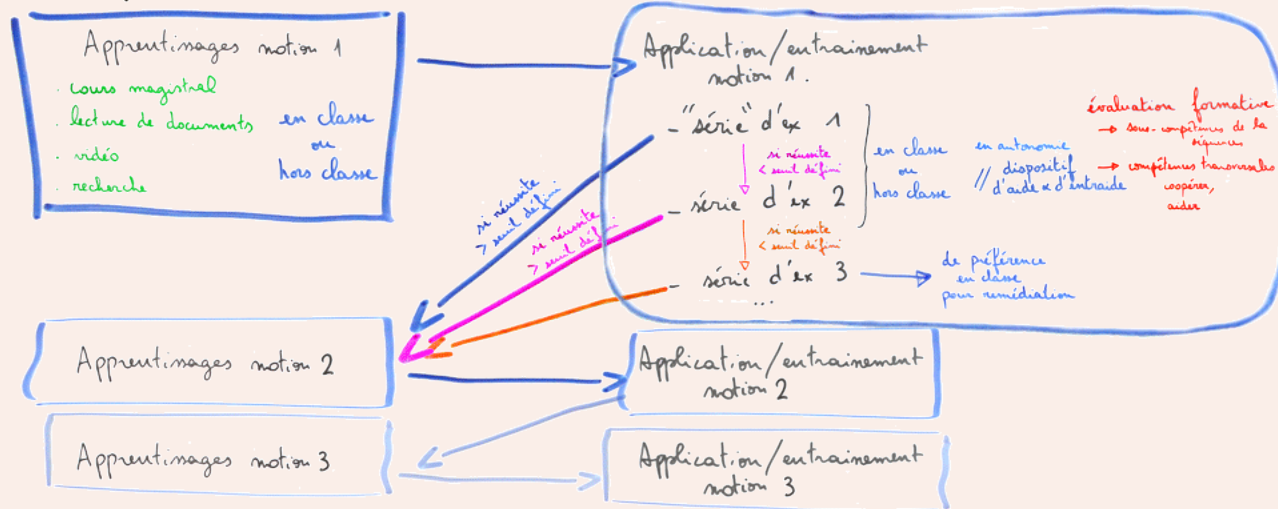 Apprentissages notion 1
. cours magistral
. lecture de documents
. vidéo
. recherche
en classe
ou
hors classe
Application/entrainement
notion 1.
- "série" d'ex 1
si réussite
< seuil défini
- série d'ex 2
si réussite
< seuil défini
- série d'ex 3
...
en classe
ou
hors classe
en autonomie
// dispositif
d'aide & d'entraide
évaluation formative
→ sous-compétences de la
séquences
→ compétences transversales
coopérer,
aider
de préférence
en classe
pour remédiation
si réussite
> seuil défini
si réussite
> seuil défini
Apprentissages notion 2
Application/entrainement
notion 2
Apprentissages notion 3
Application/entrainement
notion 3